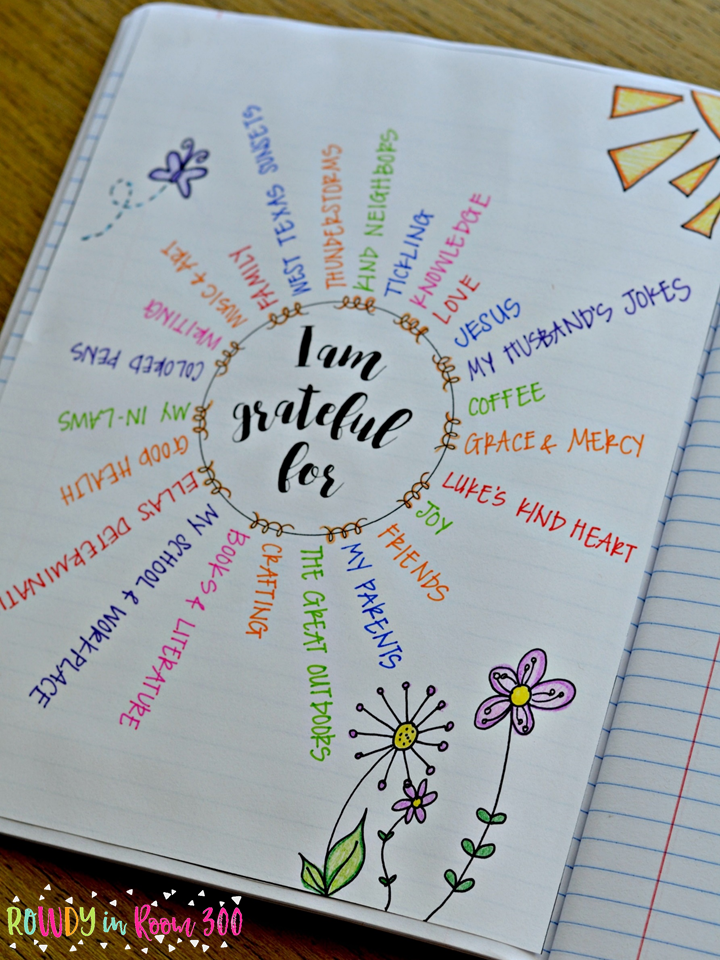 I am
grateful
for
WEST TEXAS SUNSETS
THUNDERSTORMS
KIND NEIGHBORS
TICKLING
KNOWLEDGE
LOVE
JESUS
MY HUSBAND'S JOKES
COFFEE
GRACE & MERCY
LUKE'S KIND HEART
JOY
FRIENDS
MY PARENTS
THE GREAT OUTDOORS
CRAFTING
BOOKS & LITERATURE
MY SCHOOL & WORKPLACE
ELLA'S DETERMINATI
GOOD HEALTH
MY IN-LAWS
COLORED PENS
WRITING
MUSIC & ART
FAMILY
ROWDY in Room 300